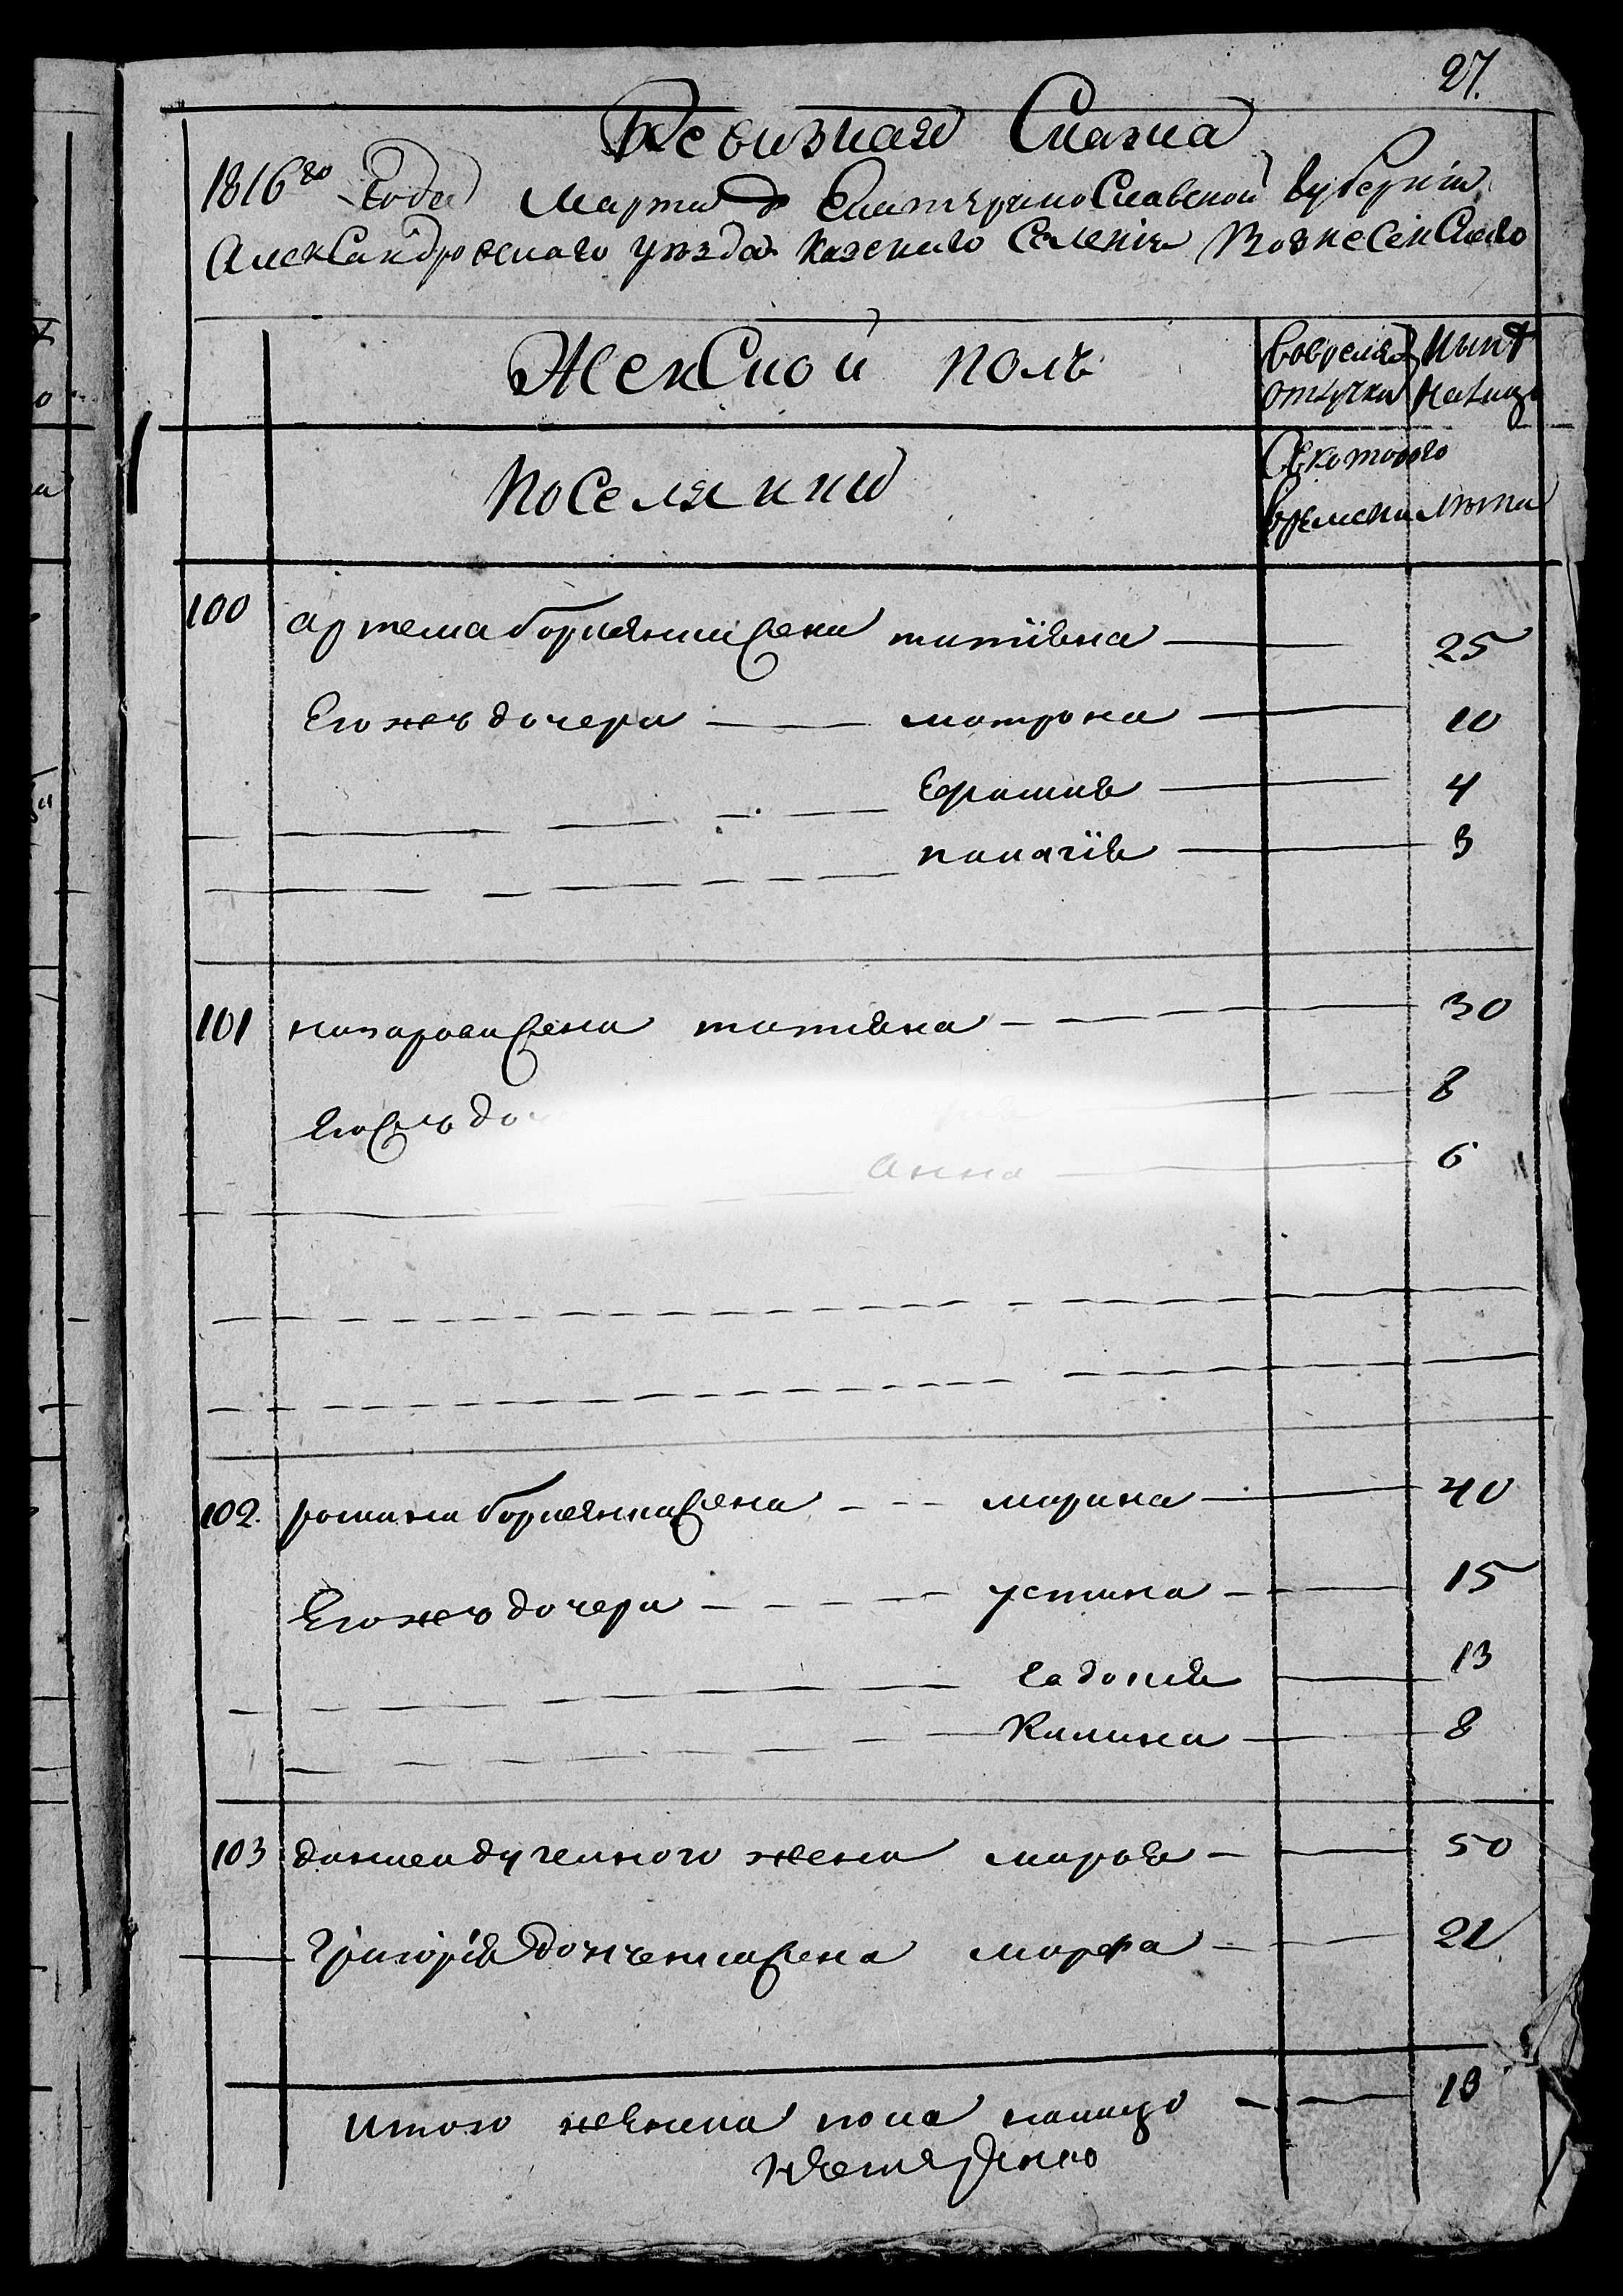 27.
Ревизная Сказка
1816го Года Марта д Екатеринославской Губерніи
Александровскаго уезда казенного Селенія Вознесенскаго
Женской полъ
вовремя отлучки
Нынѣ налицо
Поселянки
Скотораго времени
лета
100 артема борисенка жена татіяна 25
Его жъ дочери матрона 10
Ефимия 4
палагія 3
101 назарова жена татияна 30
Его жъ до 8
Анна 6
102. романа борисенка жена марина 40
Его жъ дочери устина 15
Евдокия 13
Калина 8
103 жена мария 50
Григорія жена марфа 21
Итого женска пола налицо 13